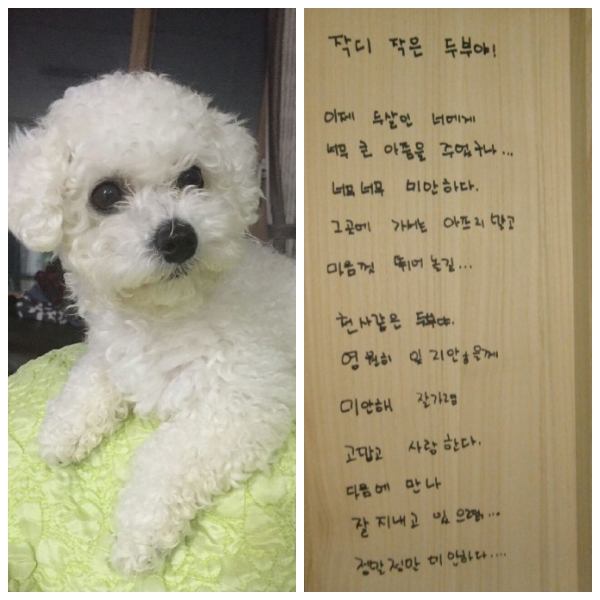 작디 작은 두부야!
이제 두살인 너에게
너무 큰 아픔을 주었구나...
너무너무 미안하다.
그곳에 가서는 아프지말고
마음껏 뛰어놀길...
천사같은 두부야.
영원히 잊지않을께
미안해 잘가렴
고맙고 사랑한다.
다음에 만나
잘 지내고 있으렴...
정말정말 미안하다....